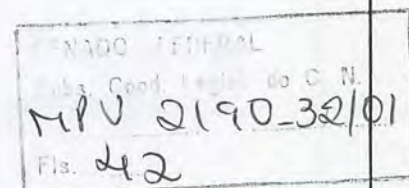 SENADO FEDERAL
Subs. Coord. Legisl. do C. N.
MPV 2190-32/01
Fls. 42